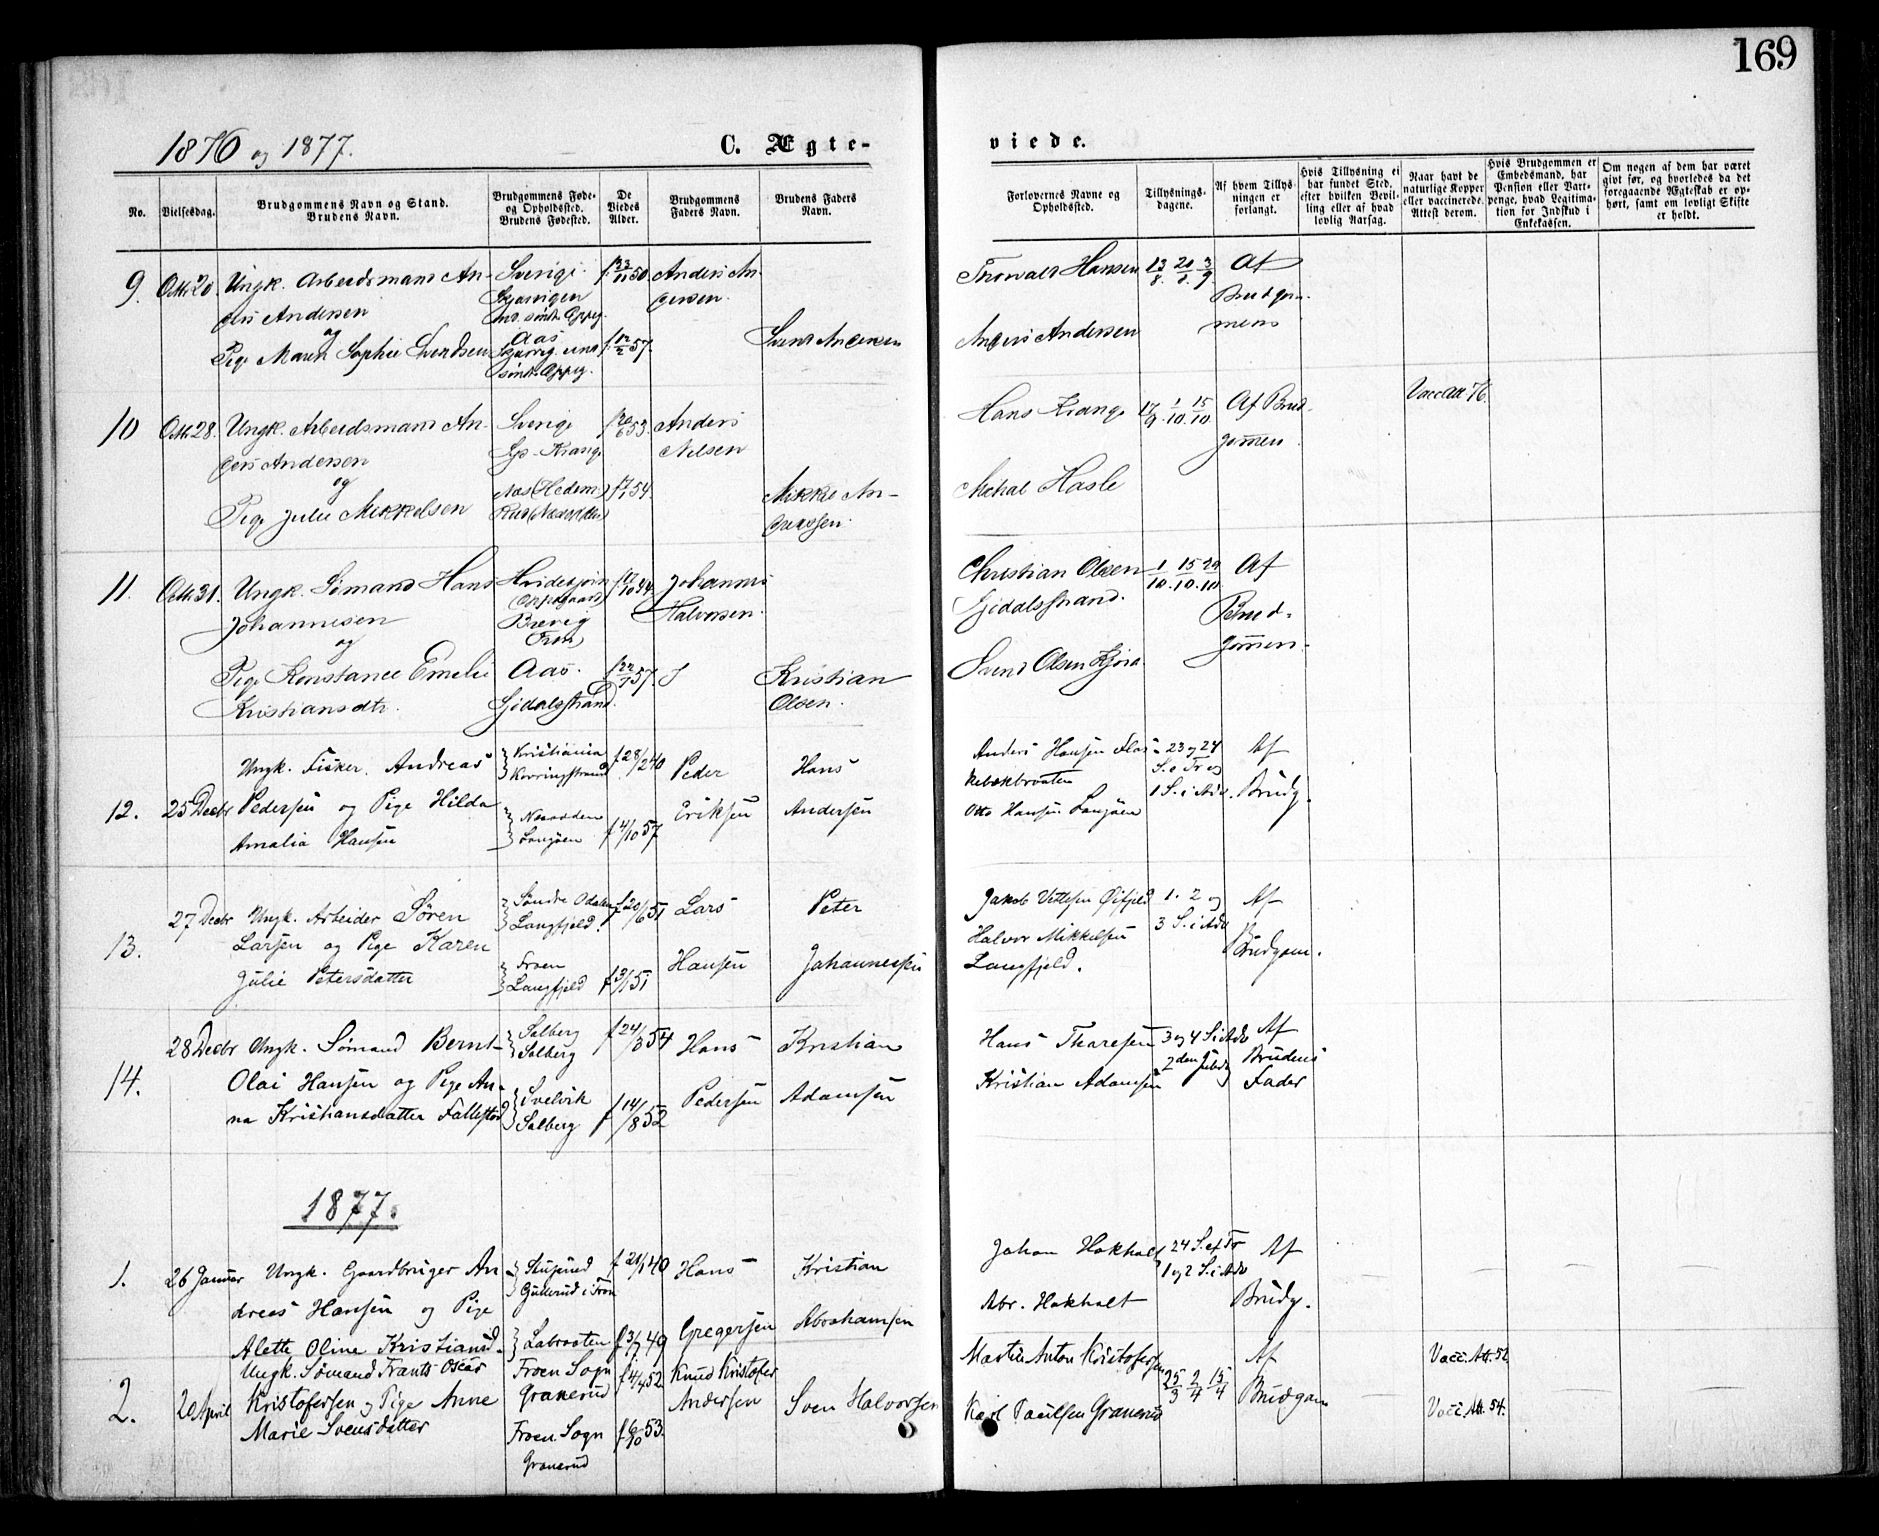 169
1876 og 1877.
C. Ægte-
viede.
No.
Vielsesdag.
Brudgommens Navn og Stand.
Brudens Navn.
Brudgommens Føde-
og Opholdssted.
Brudens Fødested.
De
Viedes
Alder.
Brudgommens
Faders Navn.
Brudens Faders
Navn.
Forlovernes Navne og
Opholdssted.
Tillysnings-
dagene.
Af hvem Tillys-
ningen er
forlangt.
Hvis Tillysning ei
har fundet Sted,
efter hvilken Bevil-
ling eller af hvad
lovlig Aarsag.
Naar havt de
naturlige Kopper
eller vaccinerede.
Attest derom.
Hvis Brudgommen er
Embedsmand, har
Pension eller Vart-
penge, hvad Legitima-
tion for Indskud i
Enkekassen.
Om nogen af dem har været
givt før, og hvorledes da det
foregaaende Ægteskab er op-
hørt, samt om lovligt Skifte
er holdt.
9. Octr 20. Ungk. Arbeidsmand An-
ders Andersen
og
Pige Maren Sophie Svendsen
Sverige.
Aas
f. 23/11 50.
f. 12/2 57.
Anders An-
dersen.
Svend Andersen
Thorvald Hansen
Anders Andersen
13/8. 20/8. 3/9
Af
Brudgom-
mens
10 Octr 28. Ungk. Arbeidsmand An-
ders Andersen
og
Pige Julie Mikkelsen
Sverige
Lps. Krange
Næs (Hedem)
53.
54.
Anders
Nilsen
Mikkel An-
dreassen.
Hans Krange
Mikal Hasle
17/9. 1/10. 15/10
Af Brud-
gommen
Vacc att 76.
11. Octr. 31. Ungk. Sømand Hans
Johannesen
og
Pige Konstance Emelie
Kristiansdtr.
Hvidesjøin
Brevig
Aas.
Gjedalsstrand.
57.
Johannes
Halvorsen.
Kristian
Olsen.
Christian Olsen
Gjedalsstrand.
Svend Olsen Kjøia
1/10. 15/10. 29/10
Af
Brud-
gommen.
12. 25 Decbr Ungk. Fisker. Andreas
Pedersen og Pige Hilda
Amalia Hansen
Kristiania
Kerringstrand
Næsodden
Langøen
f 28/2 40
f 4/10 57
Peder
Eriksen
Hans
Andersen
Anders Hansen Flas-
kebækbraaten
Otto Hansen Langøen
23 og 24
S. e Tr og
1 S. i Adv.
Af
Brudg.
13. 27 Decbr Ungk. Arbeider Søren
Larsen og Pige Karen
Julie Petersdatter
Søndre Odalen
Langfjeld.
Froen
Langfjeld
f 20/6 51
f 3/1 51
Lars
Hansen
Peter
Johannessen
Jakob Vetlesen Øifjeld
Halvor Mikkelsen
Langfjeld.
1. 2 og
3 S. i Adv
Af
Brudgom.
14. 28 Decbr Ungk. Sømand Bernt
Olai Hansen og Pige An-
na Kristiansdatter Fallestad
Salberg
Salberg
Svelvik
Salberg
f 24/3 54
f 14/8 52
Hans
Pedersen
Kristian
Adamsen
Hans Thoresen
Kristian Adamsen
3 og 4 S i Adv
2den Juledg
Af
Brudens
Fader
1877.
1. 26 Januar Ungk. Gaardbruger An-
dreas Hansen og Pige
Alette Oline Kristiansd.
Stupuud
Gullerud i Fron
Labraaten
f 21/1 40
f 3/7 49
Hans
Gregersen
Kristian
Abrahamsen
Johan Hokholt
Abr. Hokholt
24 S. ef Tr
1 og 2 S. i Adv
Af
Brudg.
2. 20 April Ungk. Sømand Frants Oscar
Kristofersen og Pige Anne
Marie Svensdatter
Froen Sogn
Granerud
Froen Sogn
Granerud
f 4/4 52
53.
Knud Kristofer
Andersen
Sven Halvorsen
Martin Anton Kristofersen
Karl Paulsen Granerud
25/3 2/4 15/4
Af
Brudgom
Vacc. Att. 52
Vacc. Att. 54.